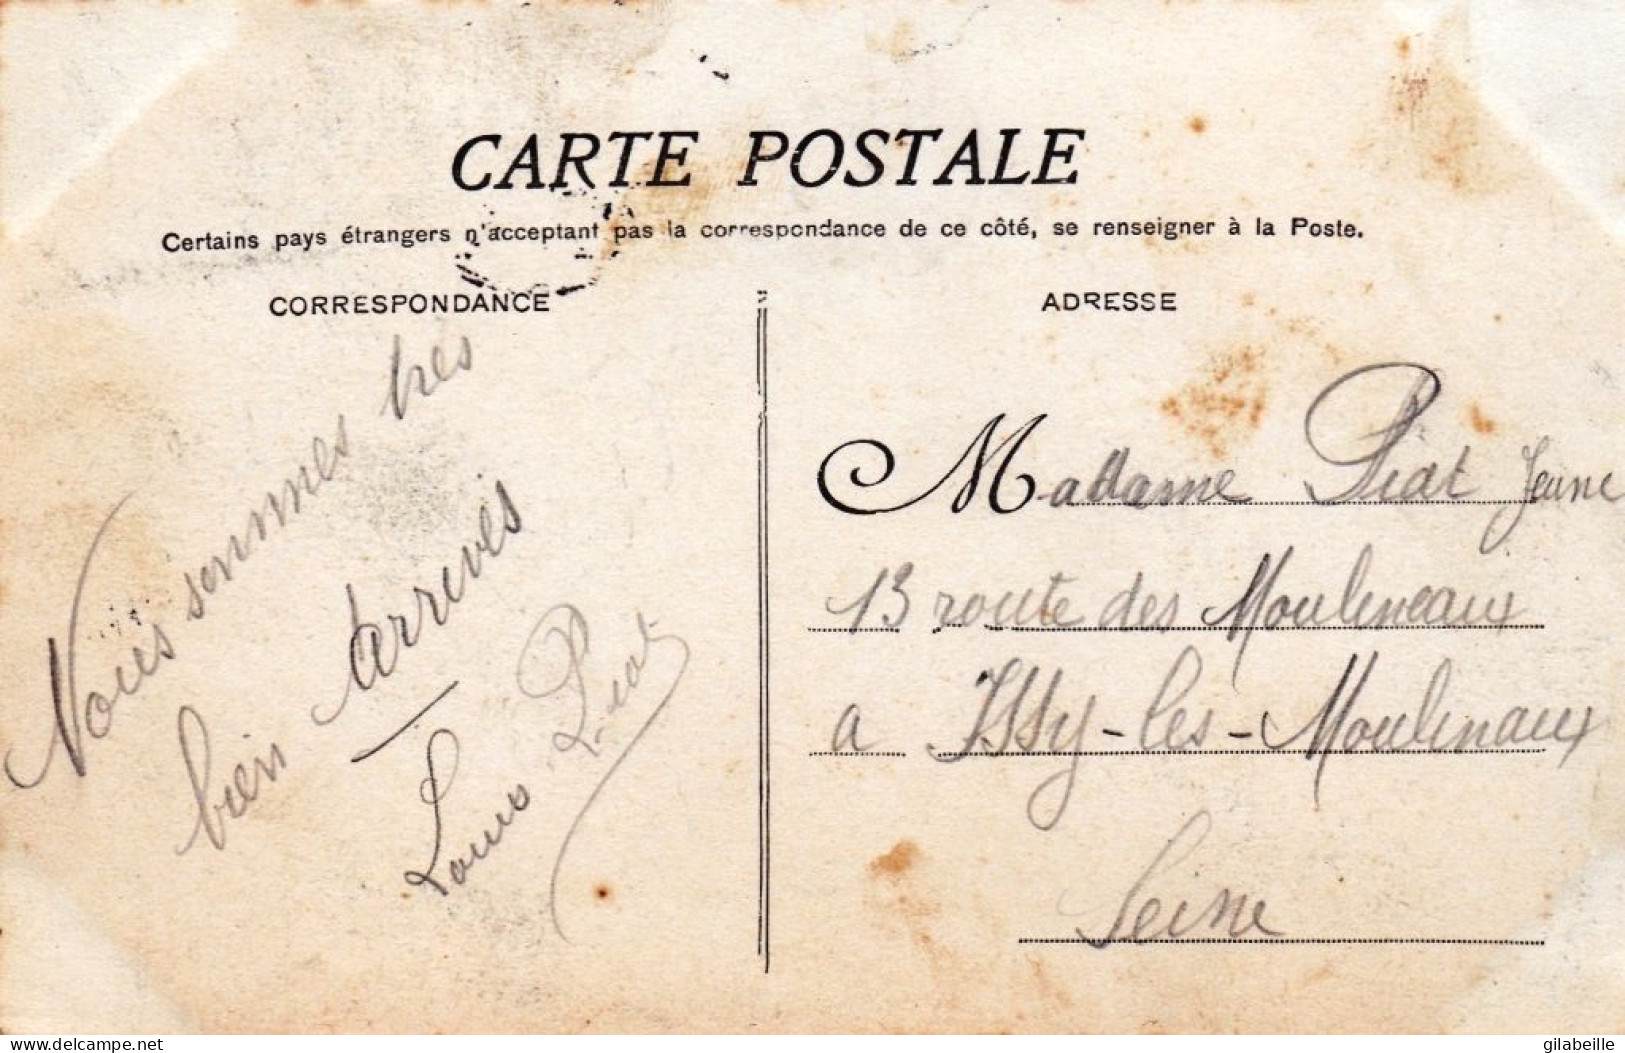 CARTE POSTALE
Certains pays étrangers n'acceptant pas la correspondance de ce côté, se renseigner à la Poste.
CORRESPONDANCE
Nous sommes tres
bien arrivés
Louis Piat
ADRESSE
Madame Piat Jeune
13 route des Moulineaux
a Issy-les-Moulinaux
Seine
delcampe.net
gilabeille